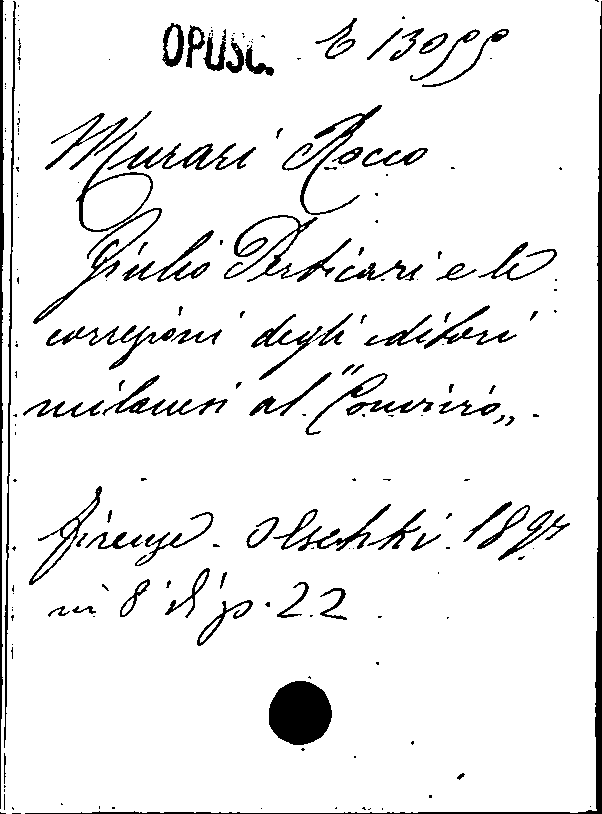 OPUSC. E 13099
Murari Rocco
Giulio Perticari e le
correzioni degli editori
milanesi al "Convivio„.
Firenze. Olschki. 1897
in 8° di p. 22